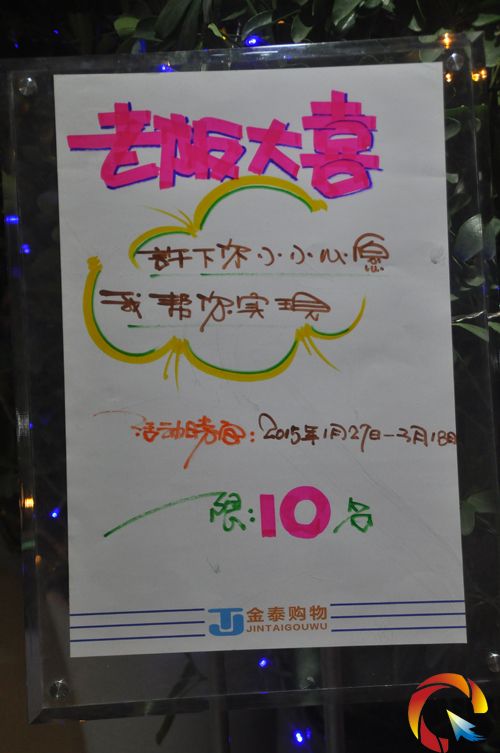 老版大喜
許下你小小心愿
我帮你实現
活动時间：2015年1月27日-3月18日
限：10名
TJ 金泰购物
JINTAIGOUWU